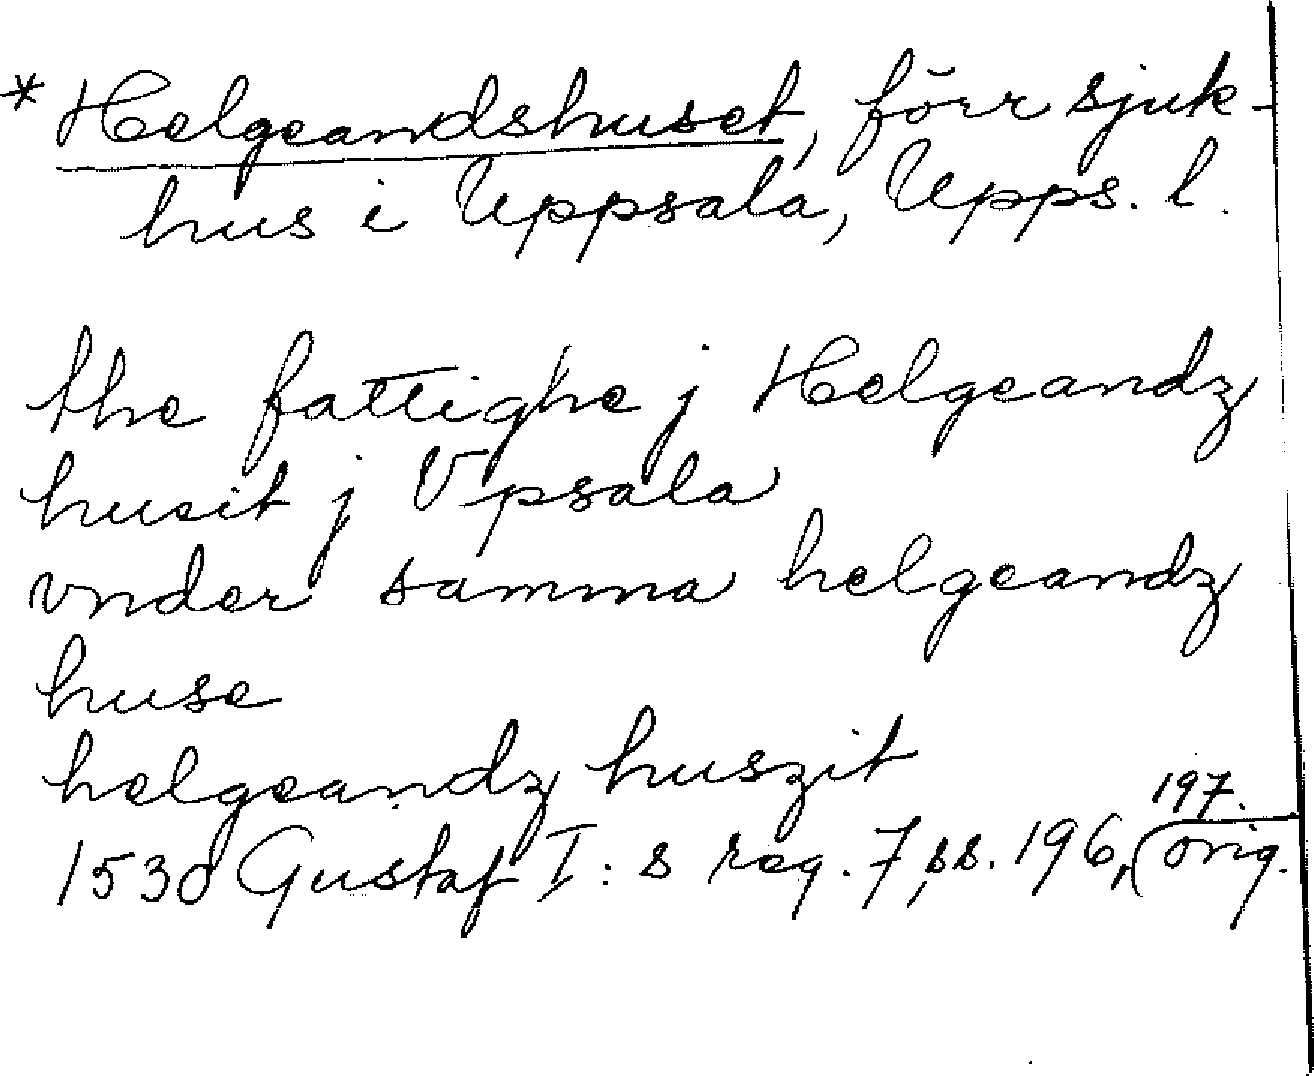 * Helgeandshuset, förr sjuk-
hus i Uppsala, Upps. l.
the fattighe j Helgeandz
husit j Vpsala
vnder samma helgeandz
huse
helgeandz huszit
197.
1530 Gustaf I:s reg. 7, ss. 196, (orig.